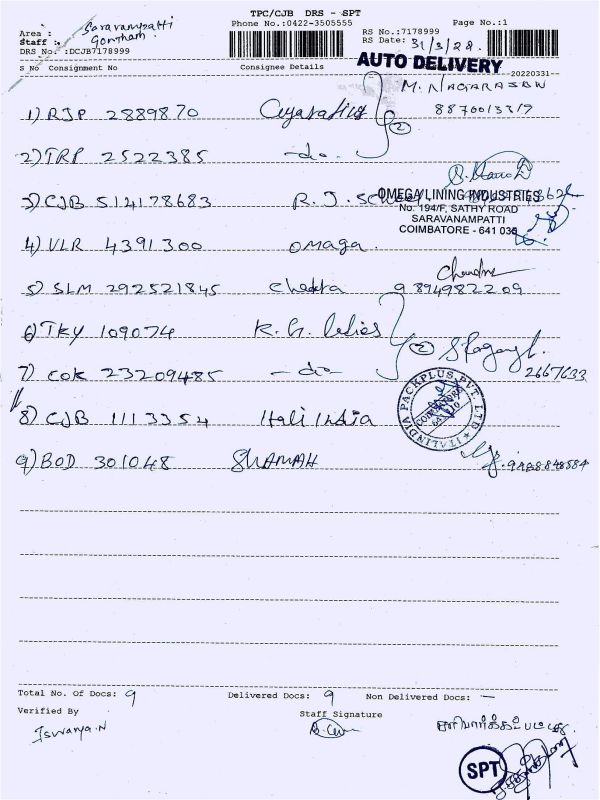 TPC/CJB DRS - SPT
Area : Saravampatti
Phone No.:0422-3505555
Page No.:1
Staff : Gowtham.
RS No.:7178999
DRS No. :DCJB7178999
RS Date: 31/3/22.
AUTO DELIVERY
S No Consignment No
Consignee Details
20220331
M. NAGARASAN
1) RJP 2889870
8870013319
2) TRP 2522385 -do-
3) CJB 514178683 R. J.
OMEGA LINING INDUSTRIES
No. 194/F, SATHY ROAD
SARAVANAMPATTI
COIMBATORE - 641 035
4) VLR 4391300 omaga.
Chandra
5) SLM 292521845 9894982209
6) TKY 109074 K. G.
②
7) COK 23209485 -do-
2667633
8) CJB 1113354 Itali India
ITALINDIA PACKPLUS PVT. LTD
9) BOD 301048 SHAMAH
Total No. Of Docs: 9
Delivered Docs: 9
Non Delivered Docs: -
Verified By
Staff Signature
Iswarya.N
சரிபார்க்கப்பட்டது
SPT